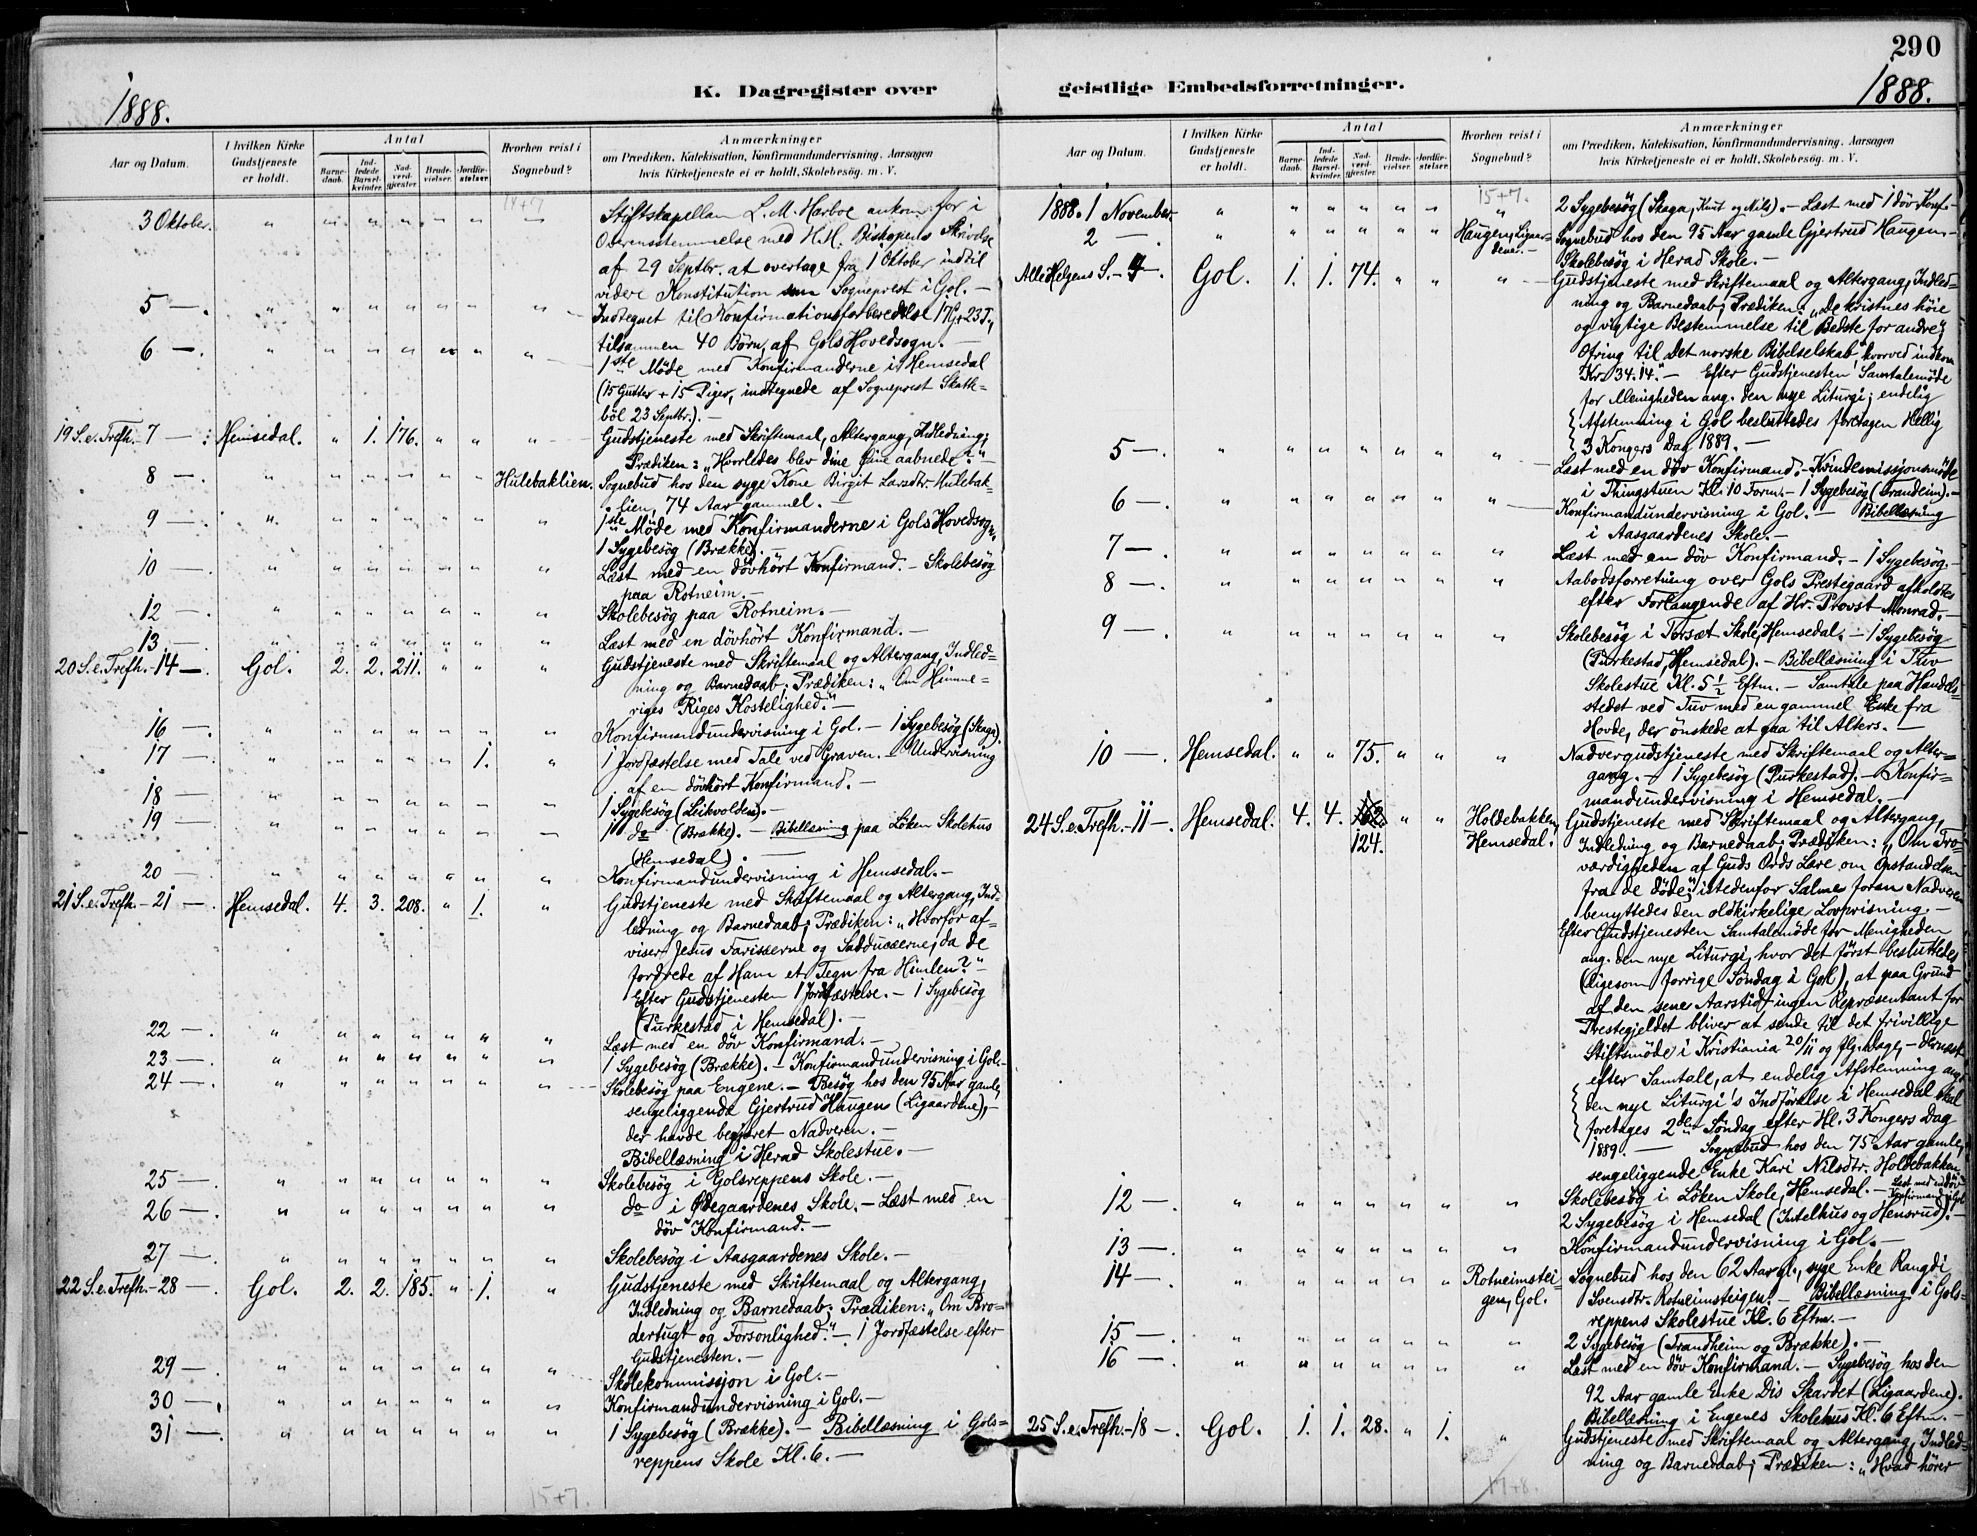 290
1888.
K. Dagregister over
geistlige Embedsforretninger.
1888.
Aar og Datum.
I hvilken Kirke Gudstjeneste er holdt.
Antal
Barnedaab.
Indledede Barselkvinder.
Nadverdgjester.
Brudevielser.
Jordfæstelser.
Hvorhen reist i Sognebud?
Anmærkninger
om Prædiken, Katekisation, Konfirmandundervisning, Aarsagen
hvis Kirketjeneste ei er holdt, Skolebesög. m. V.
3 Oktober. Stiftskapellan L. M. Harboe ankom for i
Overensstemmelse med H.H. Biskopens Skrivelse
af 29 Septbr. at overtage fra 1 Oktober indtil
videre Konstitution som Sogneprest i Gol. —
5 —. Indtegnet til Konfirmationsforberedelse 17 G + 23 P.,
tilsammen 40 Börn, af Gols Hovedsogn. —
6 —. 1ste Möde med Konfirmanderne i Hemsedal
(15 Gutter + 15 Piger, indtegnede af Sogneprest Skatteböl
23 Septbr.). —
19 S. e. Trefh. 7 —. Hemsedal. " 1. 176. Gudstjeneste med Skriftemaal, Altergang, Indledning;
Prædiken: "Hvorledes blev dine Öine aabnede?" —
8 —. Hulebaklien. Sognebud hos den syge Kone Birgit Larsdtr Hulebaklien,
74 Aar gammel. —
9 —. 1ste Möde med Konfirmanderne i Gols Hovedsogn,
1 Sygebesög (Brække). —
10 —. Læst med en dövhört Konfirmand. — Skolebesög
paa Rotneim. —
12 —. Skolebesög paa Rotneim. —
13 —. Læst med en dövhört Konfirmand. —
20 S. e. Trefh. - 14 —. Gol. 2. 2. 211. Gudstjeneste med Skriftemaal og Altergang, Indledning
og Barnedaab; Prædiken: "Om Himmeriges
Riges Kostelighed." —
16 —. Konfirmandundervisning i Gol. — 1 Sygebesög (Skaga).
17 —. 1. 1 Jordfæstelse med Tale ved Graven. — Undervisning
af en dövhört Konfirmand. —
18 —. 1 Sygebesög (Leikvolden). —
19 —. 1 do (Brække). — Bibellæsning paa Löken Skolehus
(Hemsedal). —
20 —. Konfirmandundervisning i Hemsedal. —
21 S. e. Trefh. - 21 —. Hemsedal. 4. 3. 208. " 1. Gudstjeneste med Skriftemaal og Altergang, Indledning
og Barnedaab; Prædiken: "Hvorfor afviser
Jesus Farisæerne og Sadducæerne, da de
fordrede af Ham et Tegn fra Himlen?" —
Efter Gudstjenesten 1 Jordfæstelse. — 1 Sygebesög
(Turkestad i Hemsedal). —
22 —. Læst med en döv Konfirmand. —
23 —. 1 Sygebesög (Brække). — Konfirmandundervisning i Gol. —
24 —. Skolebesög paa Engene. — Besög hos den 95 Aar gamle,
sengeliggende Gjertrud Haugen (Ligaardene),
der havde begjæret Nadveren. —
Bibellæsning i Herad Skolestue. —
25 —. Skolebesög i Golsreppens Skole. —
26 —. do i Ødegaardenes Skole. — Læst med en
döv Konfirmand. —
27 —. Skolebesög i Aasgaardenes Skole. —
22 S. e. Trefh. - 28 —. Gol. 2. 2. 185. " 1. Gudstjeneste med Skriftemaal og Altergang,
Indledning og Barnedaab; Prædiken: "Om Brodertugt
og Forsonlighed." — 1 Jordfæstelse efter
Gudstjenesten. —
29 —. Skolekommissjon i Gol. —
30 —. Konfirmandundervisning i Gol. —
31 —. 1 Sygebesög (Brække). — Bibellæsning i Golsreppens
Skole Kl. 6. —
15+7.
Aar og Datum.
I hvilken Kirke Gudstjeneste er holdt.
Antal
Barnedaab.
Indledede Barselkvinder.
Nadverdgjester.
Brudevielser.
Jordfæstelser.
Hvorhen reist i Sognebud?
Anmærkninger
om Prædiken, Katekisation, Konfirmandundervisning. Aarsagen
hvis Kirketjeneste ei er holdt. Skolebesög. m. V.
15+7.
1888. 1 November. 2 Sygebesög (Skaga, Knut og Nils). — Læst med 1 döv Konf. —
2 —. Haugen, Ligardene. — Sognebud hos den 95 Aar gamle Gjertrud Haugen. —
Skolebesög i Herad Skole. —
Alle Helgens S. - 4 —. Gol. 1. 1. 74. Gudstjeneste med Skriftemaal og Altergang, Indledning
og Barnedaab; Prædiken: "De kristnes höie
og vigtige Bestemmelse til Bedste for andre";
Ofring til det norske Bibelselskab, hvorved indkom
Kr. 34.14. — Efter Gudstjenesten Samtalemöde
for Menigheden ang. den nye Liturgi; endelig
Afstemning i Gol besluttedes foretagen Hellig
3 Kongers Dag 1889. —
5 —. Læst med en döv Konfirmand. — Kvindemissjonsmöde
i Thingstuen Kl. 10 Form. — 1 Sygebesög (Trandeim). —
6 —. Konfirmandundervisning i Gol. — Bibellæsning
i Aasgaardenes Skole. —
7 —. Læst med en döv Konfirmand. — 1 Sygebesög. —
8 —. Aabodsforretning over Gols Prestegaard afholdtes
efter Forlangende af Hr. Provst Monrad. —
9 —. Skolebesög i Torsæt Skole, Hemsedal. — 1 Sygebesög
(Turkestad, Hemsedal). — Bibellæsning i Tuv
Skolestue Kl. 5 1/2 Eftm. — Samtale paa Handelsstedet
ved Tuv med en gammel Enke fra
Hovde, der önskede at gaa til Alters. —
10 —. Hemsedal. " " 75. Nadvergudstjeneste med Skriftemaal og Altergang.
— 1 Sygebesög (Turkestad). — Konfirmandundervisning
i Hemsedal. —
24 S. e. Trefh. - 11 —. Hemsedal. 4. 4. 124. Holdebakken, Hemsedal. Gudstjeneste med Skriftemaal og Altergang,
Indledning og Barnedaab; Prædiken: "Om Troværdigheden
af Guds Ords Lære om Opstandelsen
fra de döde"; istedenfor Salme foran Nadveren
benyttedes den oldkirkelige Lovprisning. —
Efter Gudstjenesten Samtalemöde for Menigheden
ang. den nye Liturgi, hvor det först besluttedes
(ligesom forrige Söndag i Gol), at paa Grund
af den sene Aarstid ingen Repræsentant for
Prestegjeldet bliver at sende til det frivillige
Stiftsmöde i Kristiania 20/11 og flg. Dage, — dernæst
efter Samtale, at endelig Afstemning ang.
den nye Liturgi's Indförelse i Hemsedal skal
foretages 2den Söndag efter Hl. 3 Kongers Dag
1889. — Sognebud hos den 75 Aar gamle,
sengeliggende Enke Kari Nilsdtr. Holdebakken.
12 —. Skolebesög i Löken Skole, Hemsedal. — Læst med en döv Konfirmand i Gol
2 Sygebesög i Hemsedal (Intelhus og Hensrud). —
13 —. Konfirmandundervisning i Gol. —
14 —. Rotneimsteigen, Gol. Sognebud hos den 62 Aar gl., syge Enke Rangdi
Svensdtr. Rotneimsteigen. — Bibellæsning i Golsreppens
Skolestue Kl. 6 Eftm. —
15 —. 2 Sygebesög (Trandheim og Brække). —
16 —. Læst med en döv Konfirmand. — Sygebesög hos den
92 Aar gamle Enke Dis Skardet (Ligaardene).
Bibellæsning i Engenes Skolehus Kl. 6 Eftm. —
25 S. e. Trefh. - 18 —. Gol. 1. 1. 28. " 1. Gudstjeneste med Skriftemaal og Altergang, Indledning
og Barnedaab; Prædiken: "Hvad hörer